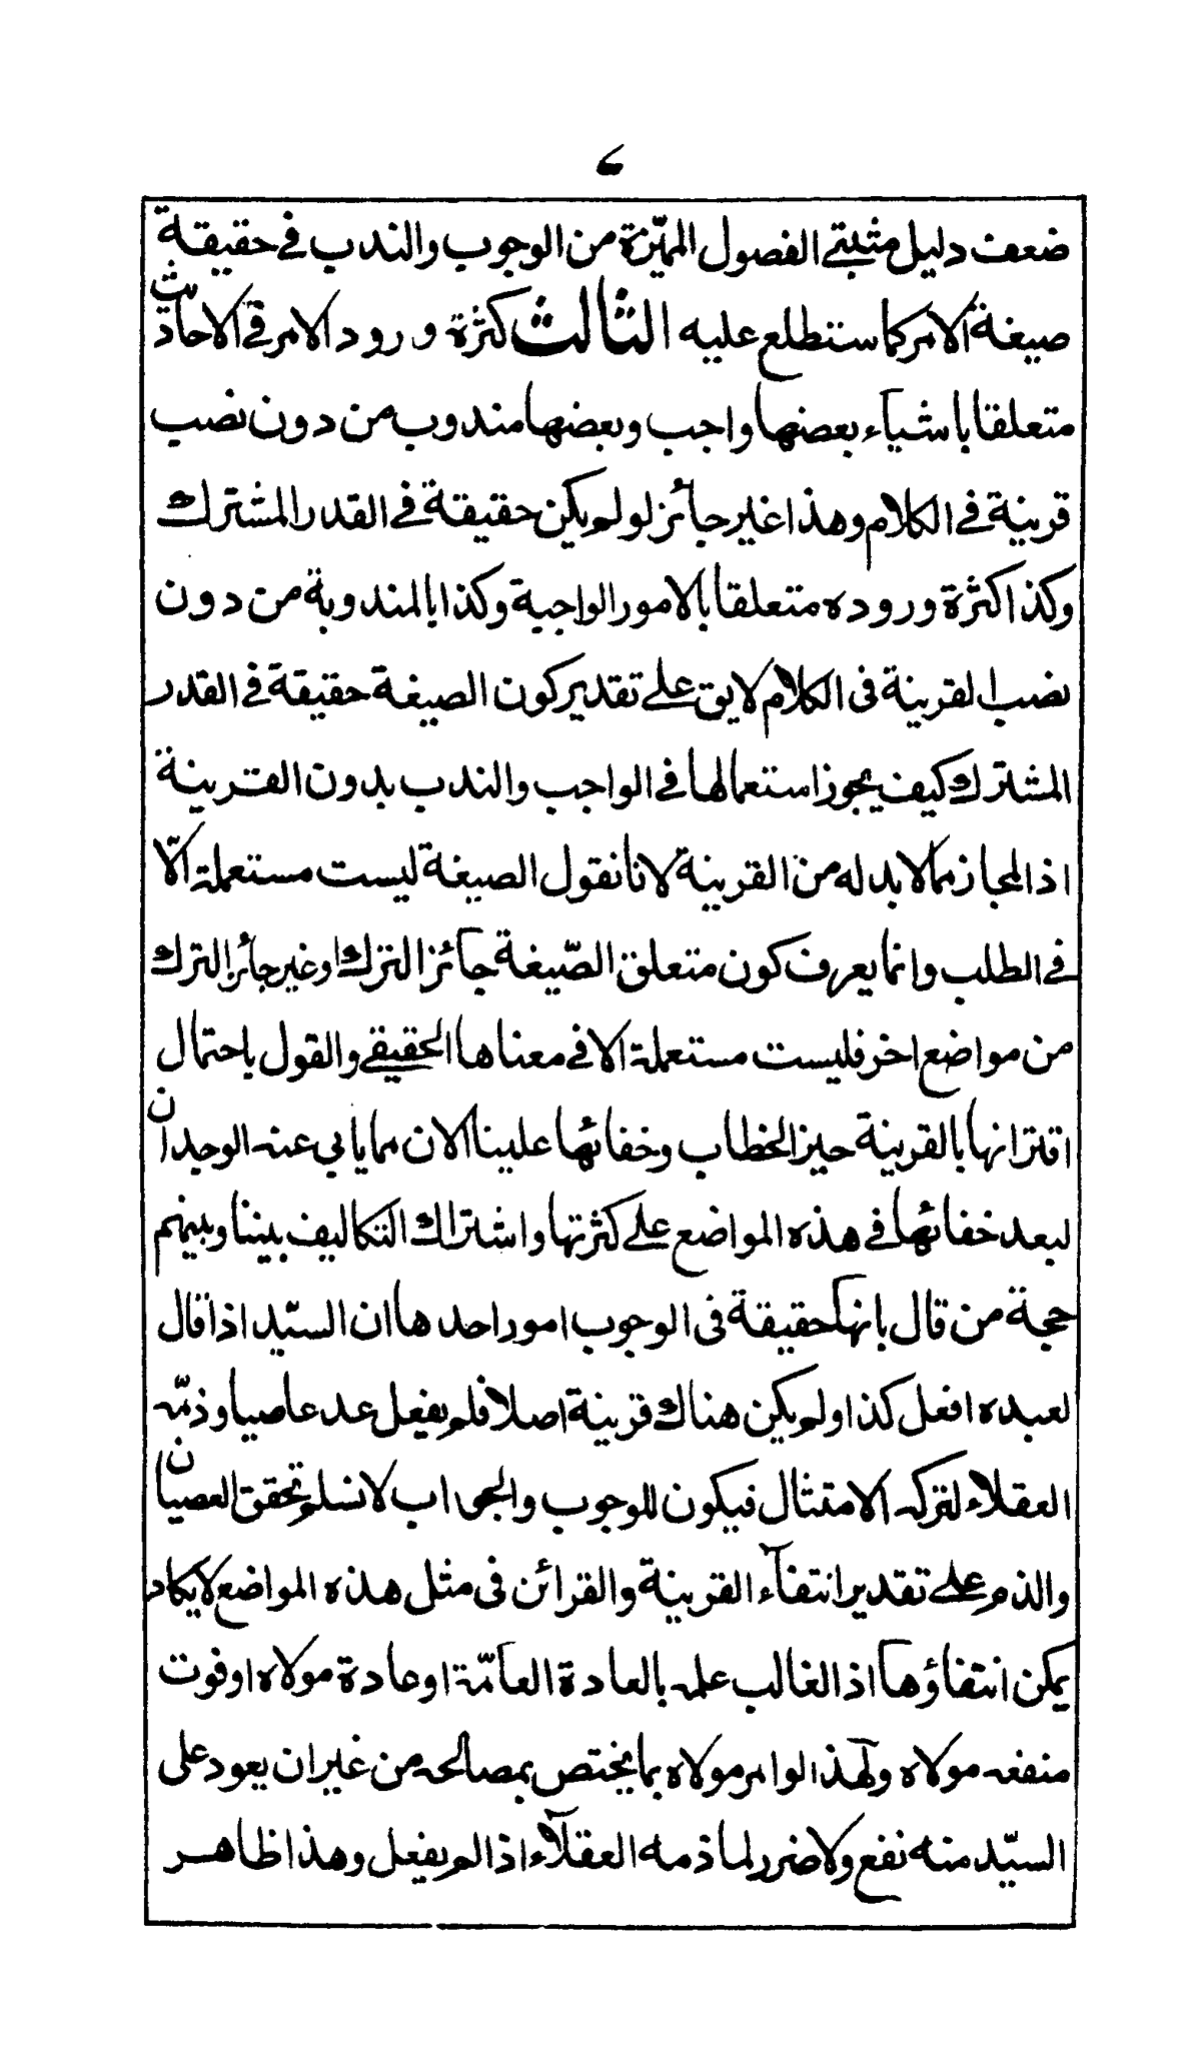 ٦
ضعف دليل مثبتى الفصول المميّزة من الوجوب والندب فى حقيقة
صيغة الامر كما ستطلع عليه الثالث كثرة ورود الامر فى الاحاديث
متعلقا باشيآء بعضها واجب وبعضها مندوب من دون نصب
قرينة فى الكلام وهذا غير جآئز لو لم يكن حقيقة فى القدر المشترك
وكذا كثرة وروده متعلقا بالامور الواجبة وكذا بالمندوبة من دون
نصب القرينة فى الكلام لا يق على تقدير كون الصيغة حقيقة فى القدر
المشترك كيف يجوز استعمالها فى الواجب والندب بدون القرينة
اذ المجاز مما لا بد له من القرينة لانا نقول الصيغة ليست مستعملة الّا
فى الطلب وانما يعرف كون متعلق الصّيغة جآئز الترك او غير جآئز الترك
من مواضع اخر فليست مستعملة الا فى معناها الحقيقى والقول باحتمال
اقترانها بالقرينة حين الخطاب وخفائها علينا الان مما يابى عنه الوجدان
لبعد خفائها فى هذه المواضع على كثرتها واشتراك التكاليف بيننا وبينهم
حجة من قال بانها حقيقة فى الوجوب امور احدها ان السيّد اذا قال
لعبده افعل كذا ولم يكن هناك قرينة اصلا فلم يفعل عد عاصيا وذمّه
العقلاء لتركه الامتثال فيكون للوجوب والجواب لا نسلم تحقق العصيان
والذم على تقدير انتفآء القرينة والقرائن فى مثل هذه المواضع لا يكاد
يمكن انتفاؤها اذ الغالب علمه بالعادة العآمّة او عادة مولاه او فوت
منفعه مولاه ولهذا لو امر مولاه بما يختص بمصالحه من غير ان يعود على
السيّد منه نفع ولا ضرر لما ذمه العقلآء اذا لم يفعل وهذا ظاهر